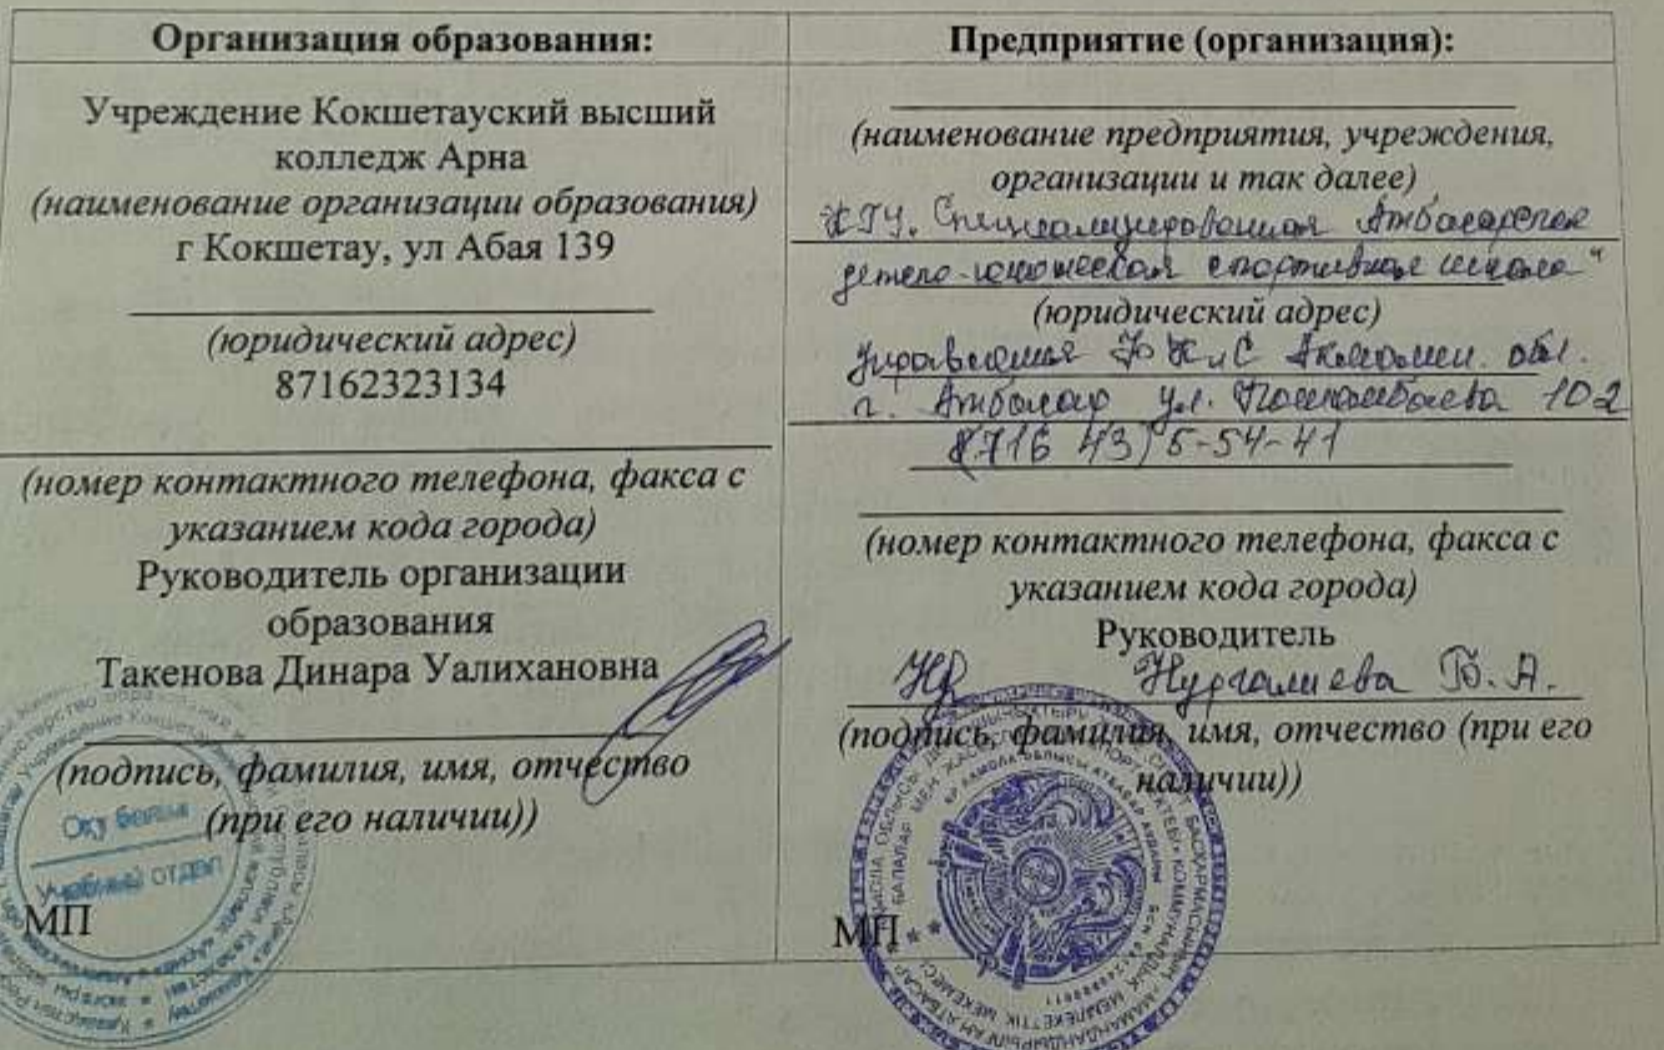 Организация образования:
Учреждение Кокшетауский высший
колледж Арна
(наименование организации образования)
г Кокшетау, ул Абая 139
(юридический адрес)
87162323134
(номер контактного телефона, факса с
указанием кода города)
Руководитель организации
образования
Такенова Динара Уалихановна
(подпись, фамилия, имя, отчество
(при его наличии))
Оқу бөлімі
Учебный отдел
МП
Предприятие (организация):
(наименование предприятия, учреждения,
организации и так далее)
КГУ. Специализированная Атбасарская
детско-юношеская спортивная школа"
(юридический адрес)
Управления ФК и С Акмолин. обл.
г. Атбасар ул. 102
(716 43) 5-54-41
(номер контактного телефона, факса с
указанием кода города)
Руководитель
Нургалиева Б. А.
(подпись, фамилия, имя, отчество (при его
наличии))
МП